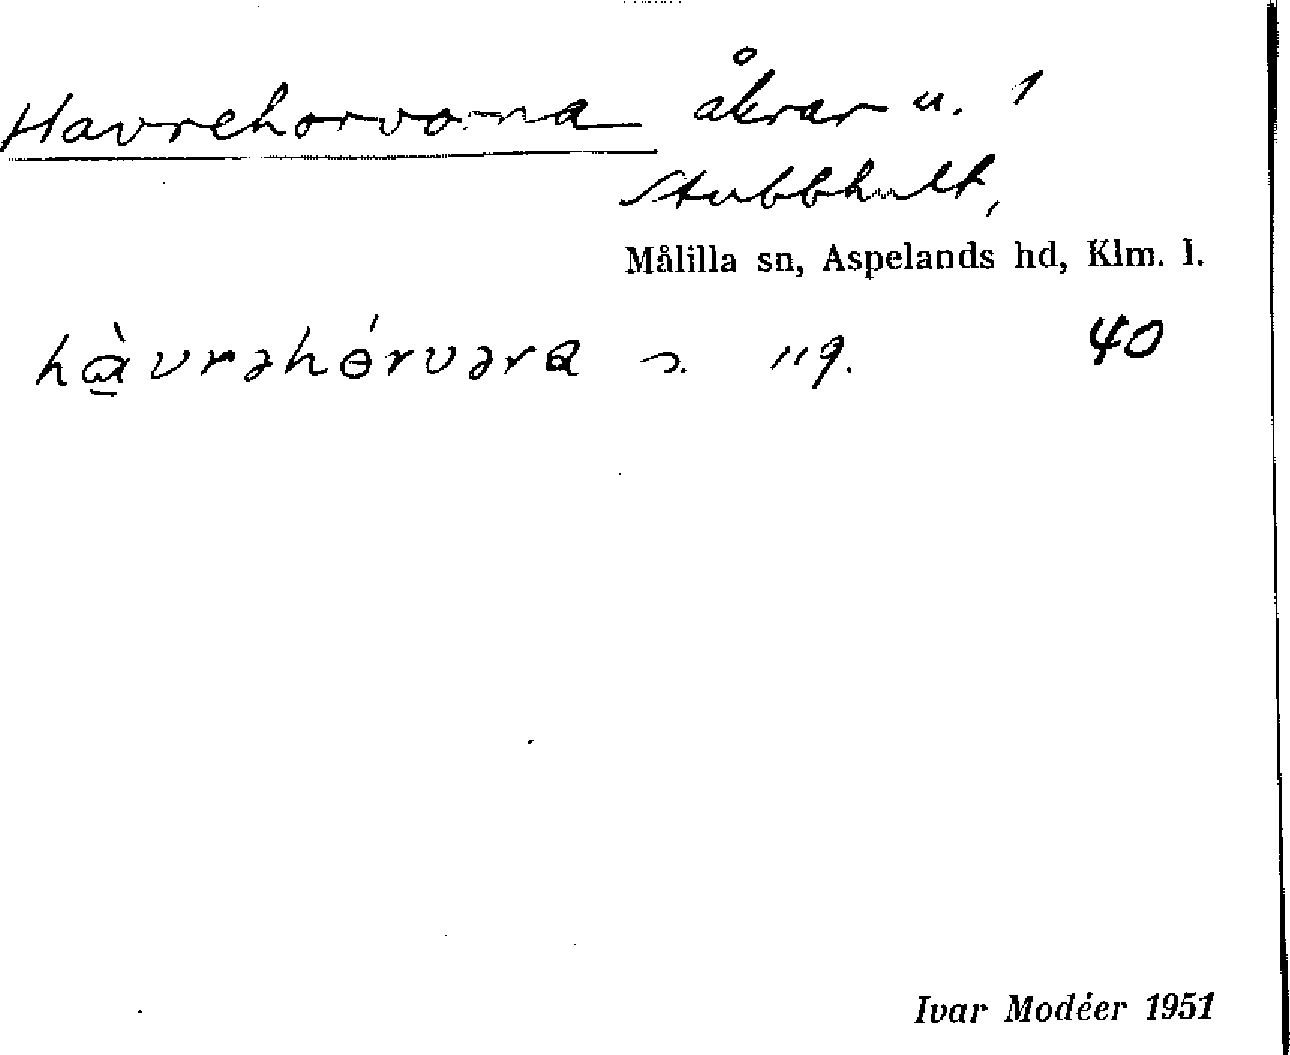 Havrehorvorna åkrar u. 1
Stubbhult,
Målilla sn, Aspelands hd, Klm. l.
hàvrəhɵ́rvəra 119. 40
Ivar Modéer 1951